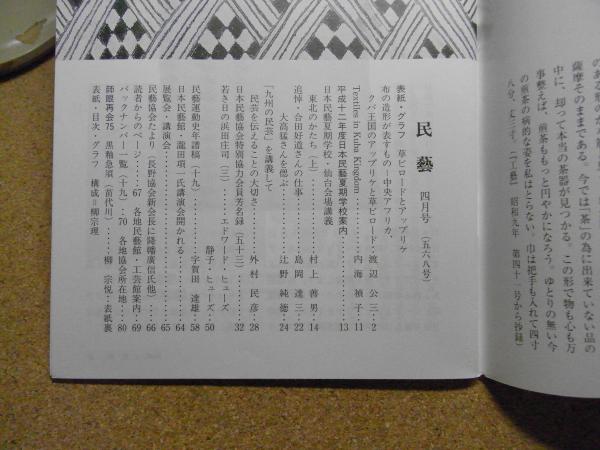 のある
薩摩そのままである。今では「茶」の為に出来ていない品の
中に、却って本当の茶器が見つかる。この形で物も心も万
事整えば、煎茶ももっと円やかになろう。ゆとりの無い今
の煎茶の病的な姿を私はとらない。巾は把手も入れて四寸
八分、丈三寸。（『工藝』 昭和九年 第四十一号から抄録）
民藝 四月号（五六八号）
表紙・グラフ 草ビロードとアップリケ
布の造形が表すもの―中央アフリカ、
クバ王国のアップリケと草ビロード・渡辺公三・2
Textiles in Kuba Kingdom・・・・内海禎子・11
平成十二年度日本民藝夏期学校案内・・・・13
日本民藝夏期学校・仙台会場講義
東北のかたち（上）・・・・村上善男・14
追悼・合田好道さんの仕事・・・・島岡達三・22
大高猛さんを偲ぶ・・・・辻野純徳・24
「九州の民芸」を講義して
民芸を伝えることの大切さ・・・・外村民彦・28
日本民藝協会特別協力会員芳名録（五十三）・・・・32
若き日の浜田庄司（三）・・・・エドワード・ヒューズ
静子・ヒューズ・50
民藝運動史年譜稿（十九）・・・・宇賀田達雄・58
日本民藝館・瀧田項一氏講演会開かれる・・・・64
展覧会・講演会・・・・65
民藝協会たより（長野協会新会長に降幡廣信氏他）・・66
読者からのページ・・67 各地民藝館・工芸館案内・・69
バックナンバー一覧（十九）・・70 各地協会所在地・・80
師眼再会75 黒釉急須（苗代川）・・・・柳宗悦・表紙裏
表紙・目次・グラフ 構成＝柳宗理